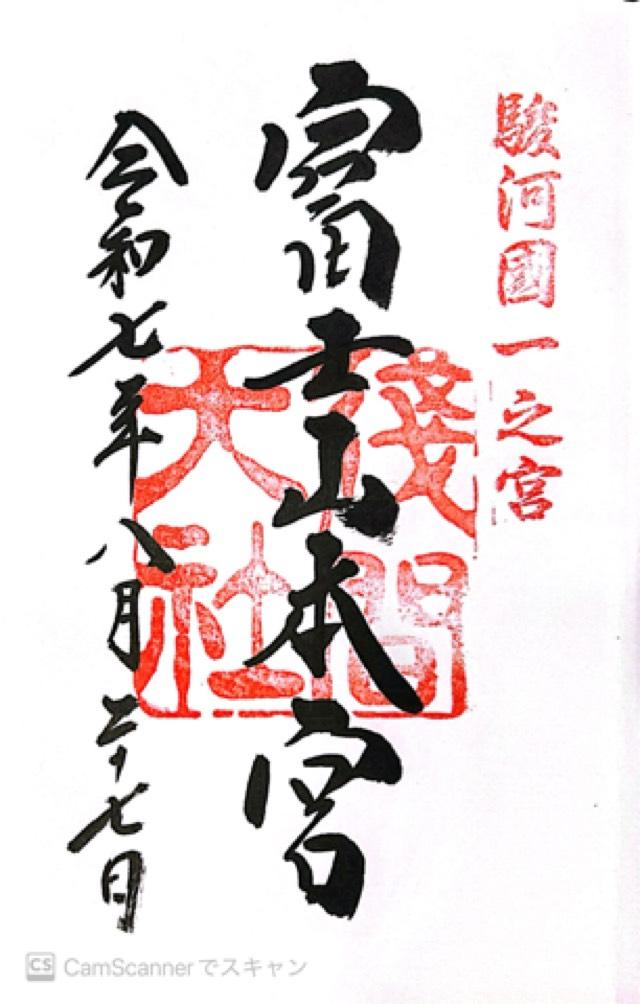 駿河國一之宮
富士山本宮
淺間大社
令和七年八月二十七日
CS CamScannerでスキャン